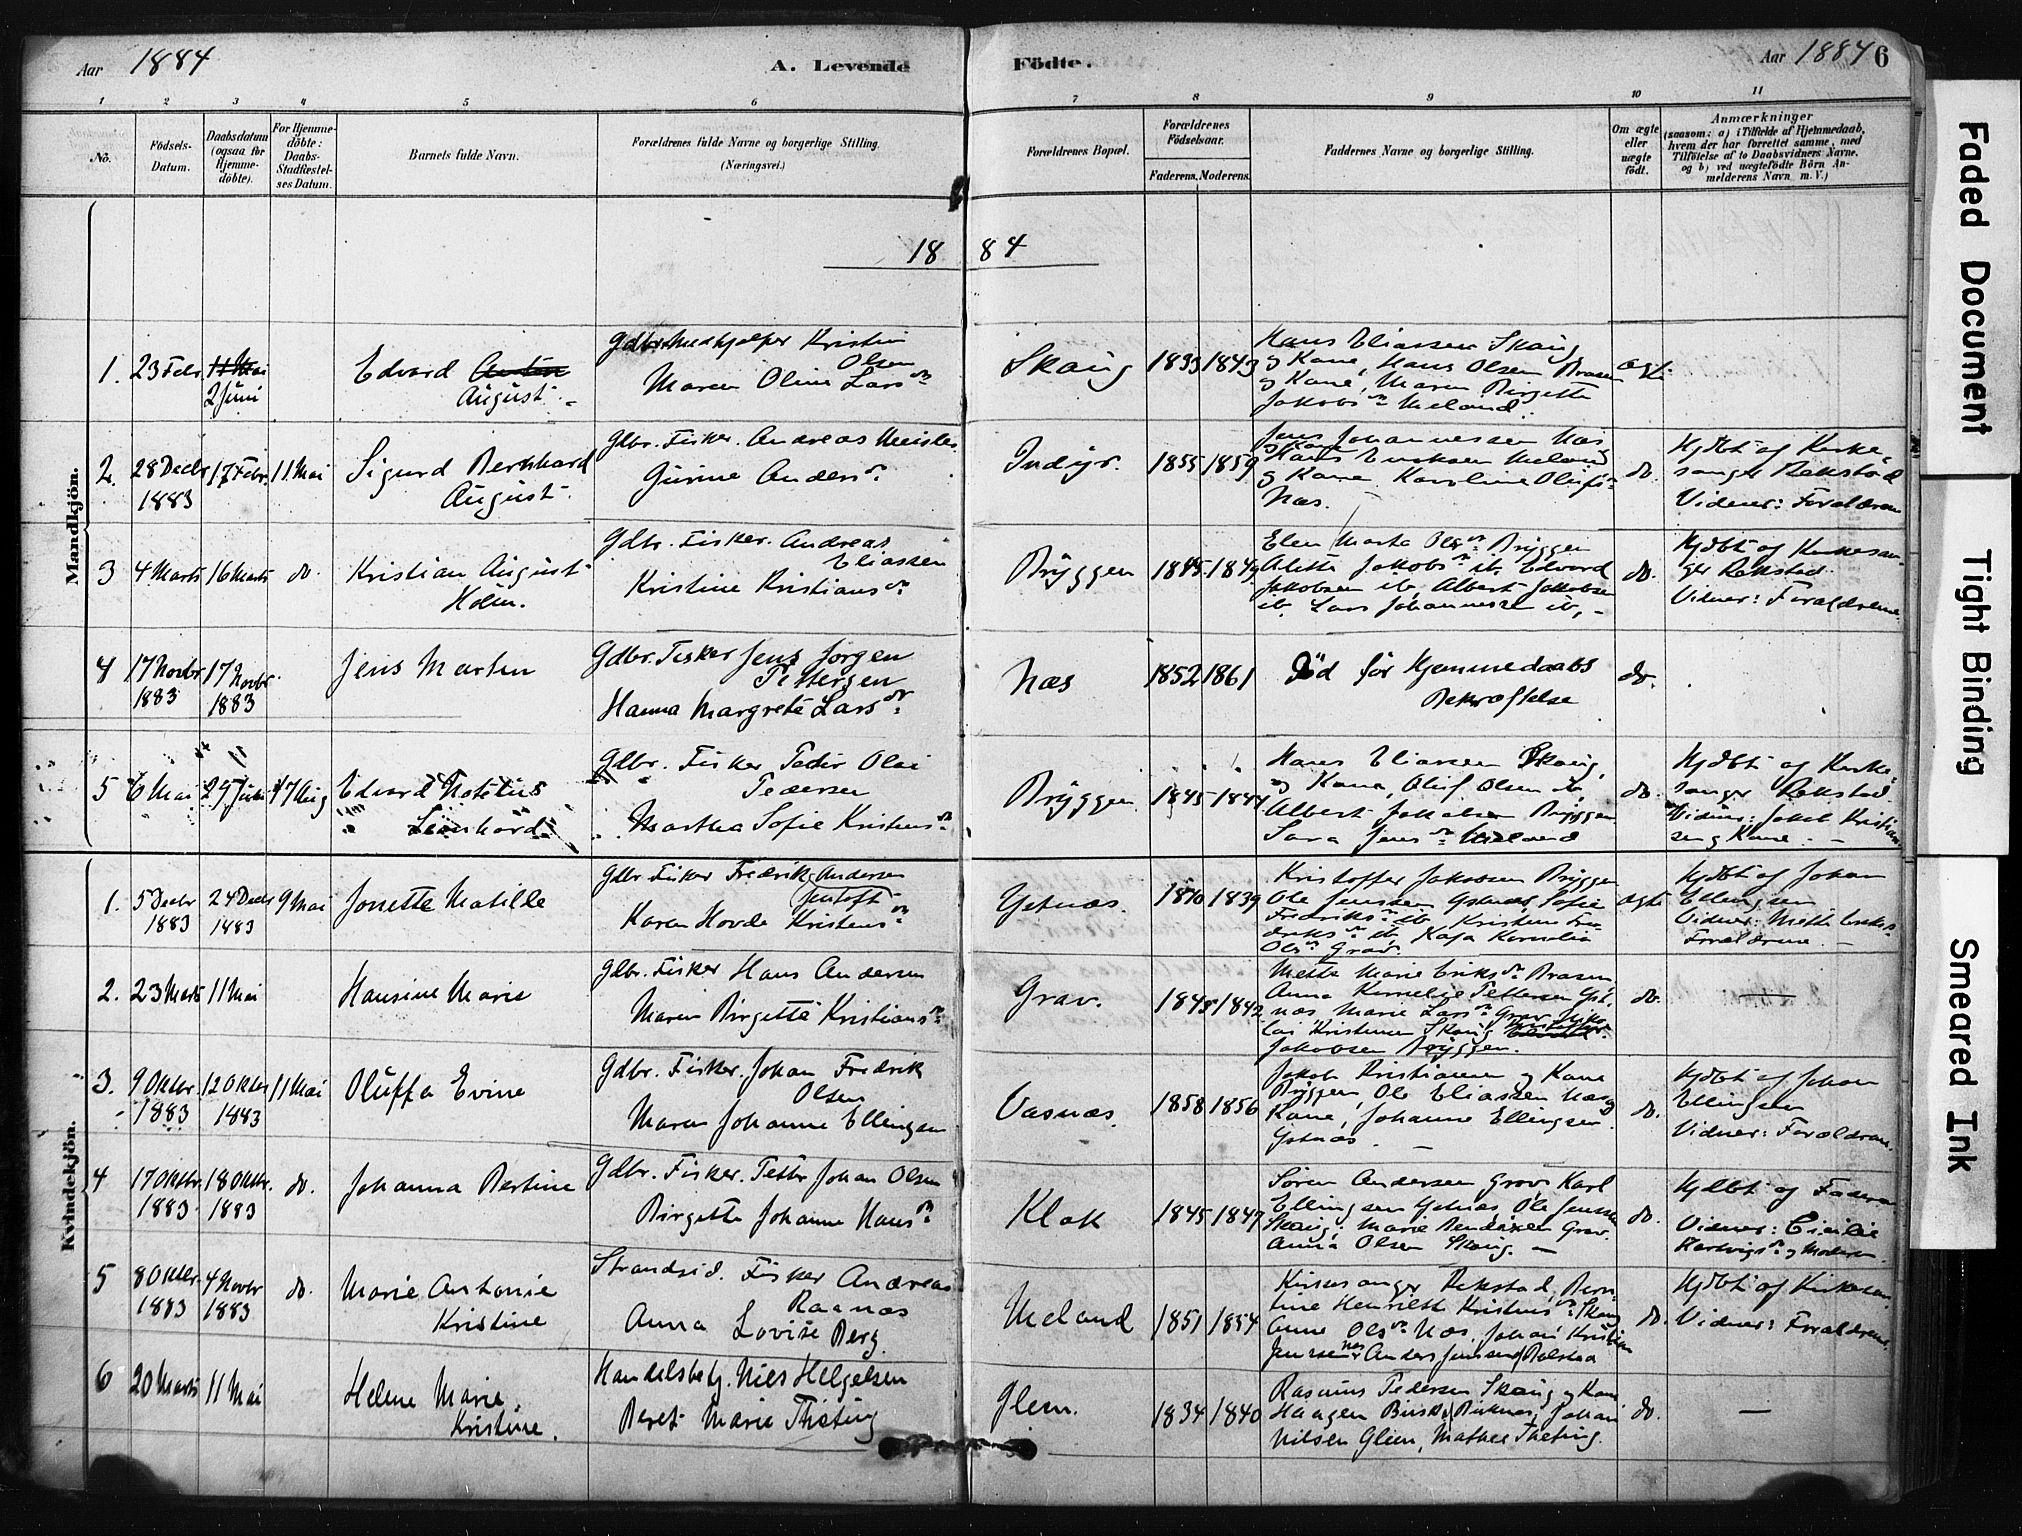 Aar 1884 A. Levende Födte. Aar 1884 6
1 2 3 4 5 6 7 8 9 10 11
No.
Födsels-Datum.
Daabsdatum (ogsaa for Hjemme-döbte).
For Hjemme-döbte: Daabs-Stadfæstel-ses Datum.
Barnets fulde Navn.
Forældrenes fulde Navne og borgerlige Stilling.
(Næringsvei.)
Forældrenes Bopæl.
Forældrenes Födselsaar.
Faderens. Moderens.
Faddernes Navne og borgerlige Stilling.
Om ægte eller uægte födt.
Anmærkninger
(saasom: a) i Tilfælde af Hjemmedaab,
hvem der har forrettet samme, med
Tilföielse af to Daabsvidners Navne,
og b) ved uægtefödte Börn An-
melderens Navn m. V.)
1884
Mandkjön.
1. 23 Febr. 11 Mai
2 Juni
Edvard
August
Gdbr. Medhjelper Kristen
Olsen
Maren Oline Larsdr.
Skaug 1833 1843
Hans Eliassen Skaug
og Kone, Hans Olsen Brasen
og Kone, Maren Birgette
Jakobsdr. Meland.
ægte
2. 28 Decbr 17 Febr. 11 Mai
1883
Sigurd Bernhard
August.
Gdbr. Fisker. Andreas
Gurine Andersdr.
Indyr. 1855 1859
Jens Johannessen Næs
og Kone Karoline
Næs.
do.
Hjdbt af Kirke-
sanger Rekstad
Vidner: Forældrene
3 4 Marts 16 Marts do.
Kristian August
Holm.
Gdbr. Fisker. Andreas
Eliassen
Kristine Kristiansdr.
Bryggen 1845 1849
Elen Marta Olsdr. Bryggen
Alette Jakobsdr. ib. Edvard
Jakobsen ib, Albert Jakobsen
ib. Lars Johannessen ib, -
do.
Hjdbt af Kirkesan-
ger Rekstad.
Vidner: Forældrene
4 17 Novbr 17 Novbr
1883 1883
Jens Marten
Gdbr. Fisker Jens Jørgen
Pettersen
Hanna Margrete Larsdr.
Næs 1852 1861
Död för Hjemmedaabs
Bekræftelse
do.
5 6 Mai 29 Juni 17 Aug
Edvard
Leonhard
Gdbr. Fisker Peder Olai
Pedersen
Martha Sofie Kristensdr.
Bryggen 1845 1844
Hans Eliassen Skaug,
og Kone, Oluf Olsen ib,
Albert Jakobsen Bryggen
Sara Jensdr. Meland
do.
Hjdbt af Kirke-
sanger Rekstad.
Vidner: Jakob Kristian
sen og Kone. -
Kvindekjön.
1. 5 Decbr 24 Decbr 9 Mai
1883 1883
Jonette Matille
Gdbr. Fisker Fredrik Andersen
Jentoft
Karen Hovde Kristensdr.
Ystnæs. 1840 1839
Kristoffer Jakobsen Bryggen
Ole Jenssen Ystnæs, Sofie
Fredriksdr. ib Kristine Fre-
driksdr. ib, Kaja Kornelia
Olsdr. Grav.
ægte
Hjdbt af Johan
Ellingsen
Vidner: Mette Eriks.
Forældrene. -
2. 23 Marts 11 Mai
Hansine Marie
Gdbr. Fisker Hans Andersen
Maren Birgette Kristiansdr.
Grav. 1845 1842
Mette Marie Eriksdr. Brasen
Anna Kornelie Pettersen Yst-
næs Marie Larsdr. Grav, Niko-
lai Kristensen Skaug
Jakobsen Bryggen.
do.
3. 9 Oktbr. 12 Oktbr 11 Mai
1883 1883
Oluffa Evine
Gdbr. Fisker. Johan Fredrik
Olsen
Maren Johanne Ellingsen
Vasnæs. 1858 1856
Jakob Kristiansen og Kone
Bryggen, Ole Eliassen Næs og
Kone, Johanne Ellingsen
Ystnæs -
do.
Hjdbt af Johan
Ellingsen
Vidner: Forældrene.
4 17 Oktbr. 18 Oktbr. do.
1883 1883
Johanna Bertine
Gdbr. Fisker. Petter Johan Olsen
Birgette Johanne Hansdr.
Klok 1845 1847
Søren Andersen Grav Karl
Ellingsen Ystnæs, Ole Jenssen
Skaug, Marie Bendixen Grav.
Anna Olsen Skaug. -
do.
Hjdbt af Faderen
Vidner: Cicilie
Hartvigsdr. og Moderen
5 8 Oktbr. 4 Novbr do.
1883 1883
Marie Antonie
Kristine
Strandsid. Fisker Andreas
Raanæs
Anna Lovise Berg
Meland 1851 1854
Kirkesanger Rekstad, Bern-
tine Henriette Kristensdr. Skaug
Anne Olsdr. Næs, Johan Kristian
do.
Hjdbt af Kirkesan.
Vidner: Forældrene.
6 20 Marts 11 Mai
Helene Marie
Kristine.
Handelsbetj. Nils Helgesen
Beret Marie Theting
Glem. 1834 1840
Rasmus Pedersen Skaug og Kone
Haagen Johan
Nilsen Glem, Mathea Theting.
do.
—
Faded Document
Tight Binding
Smeared Ink